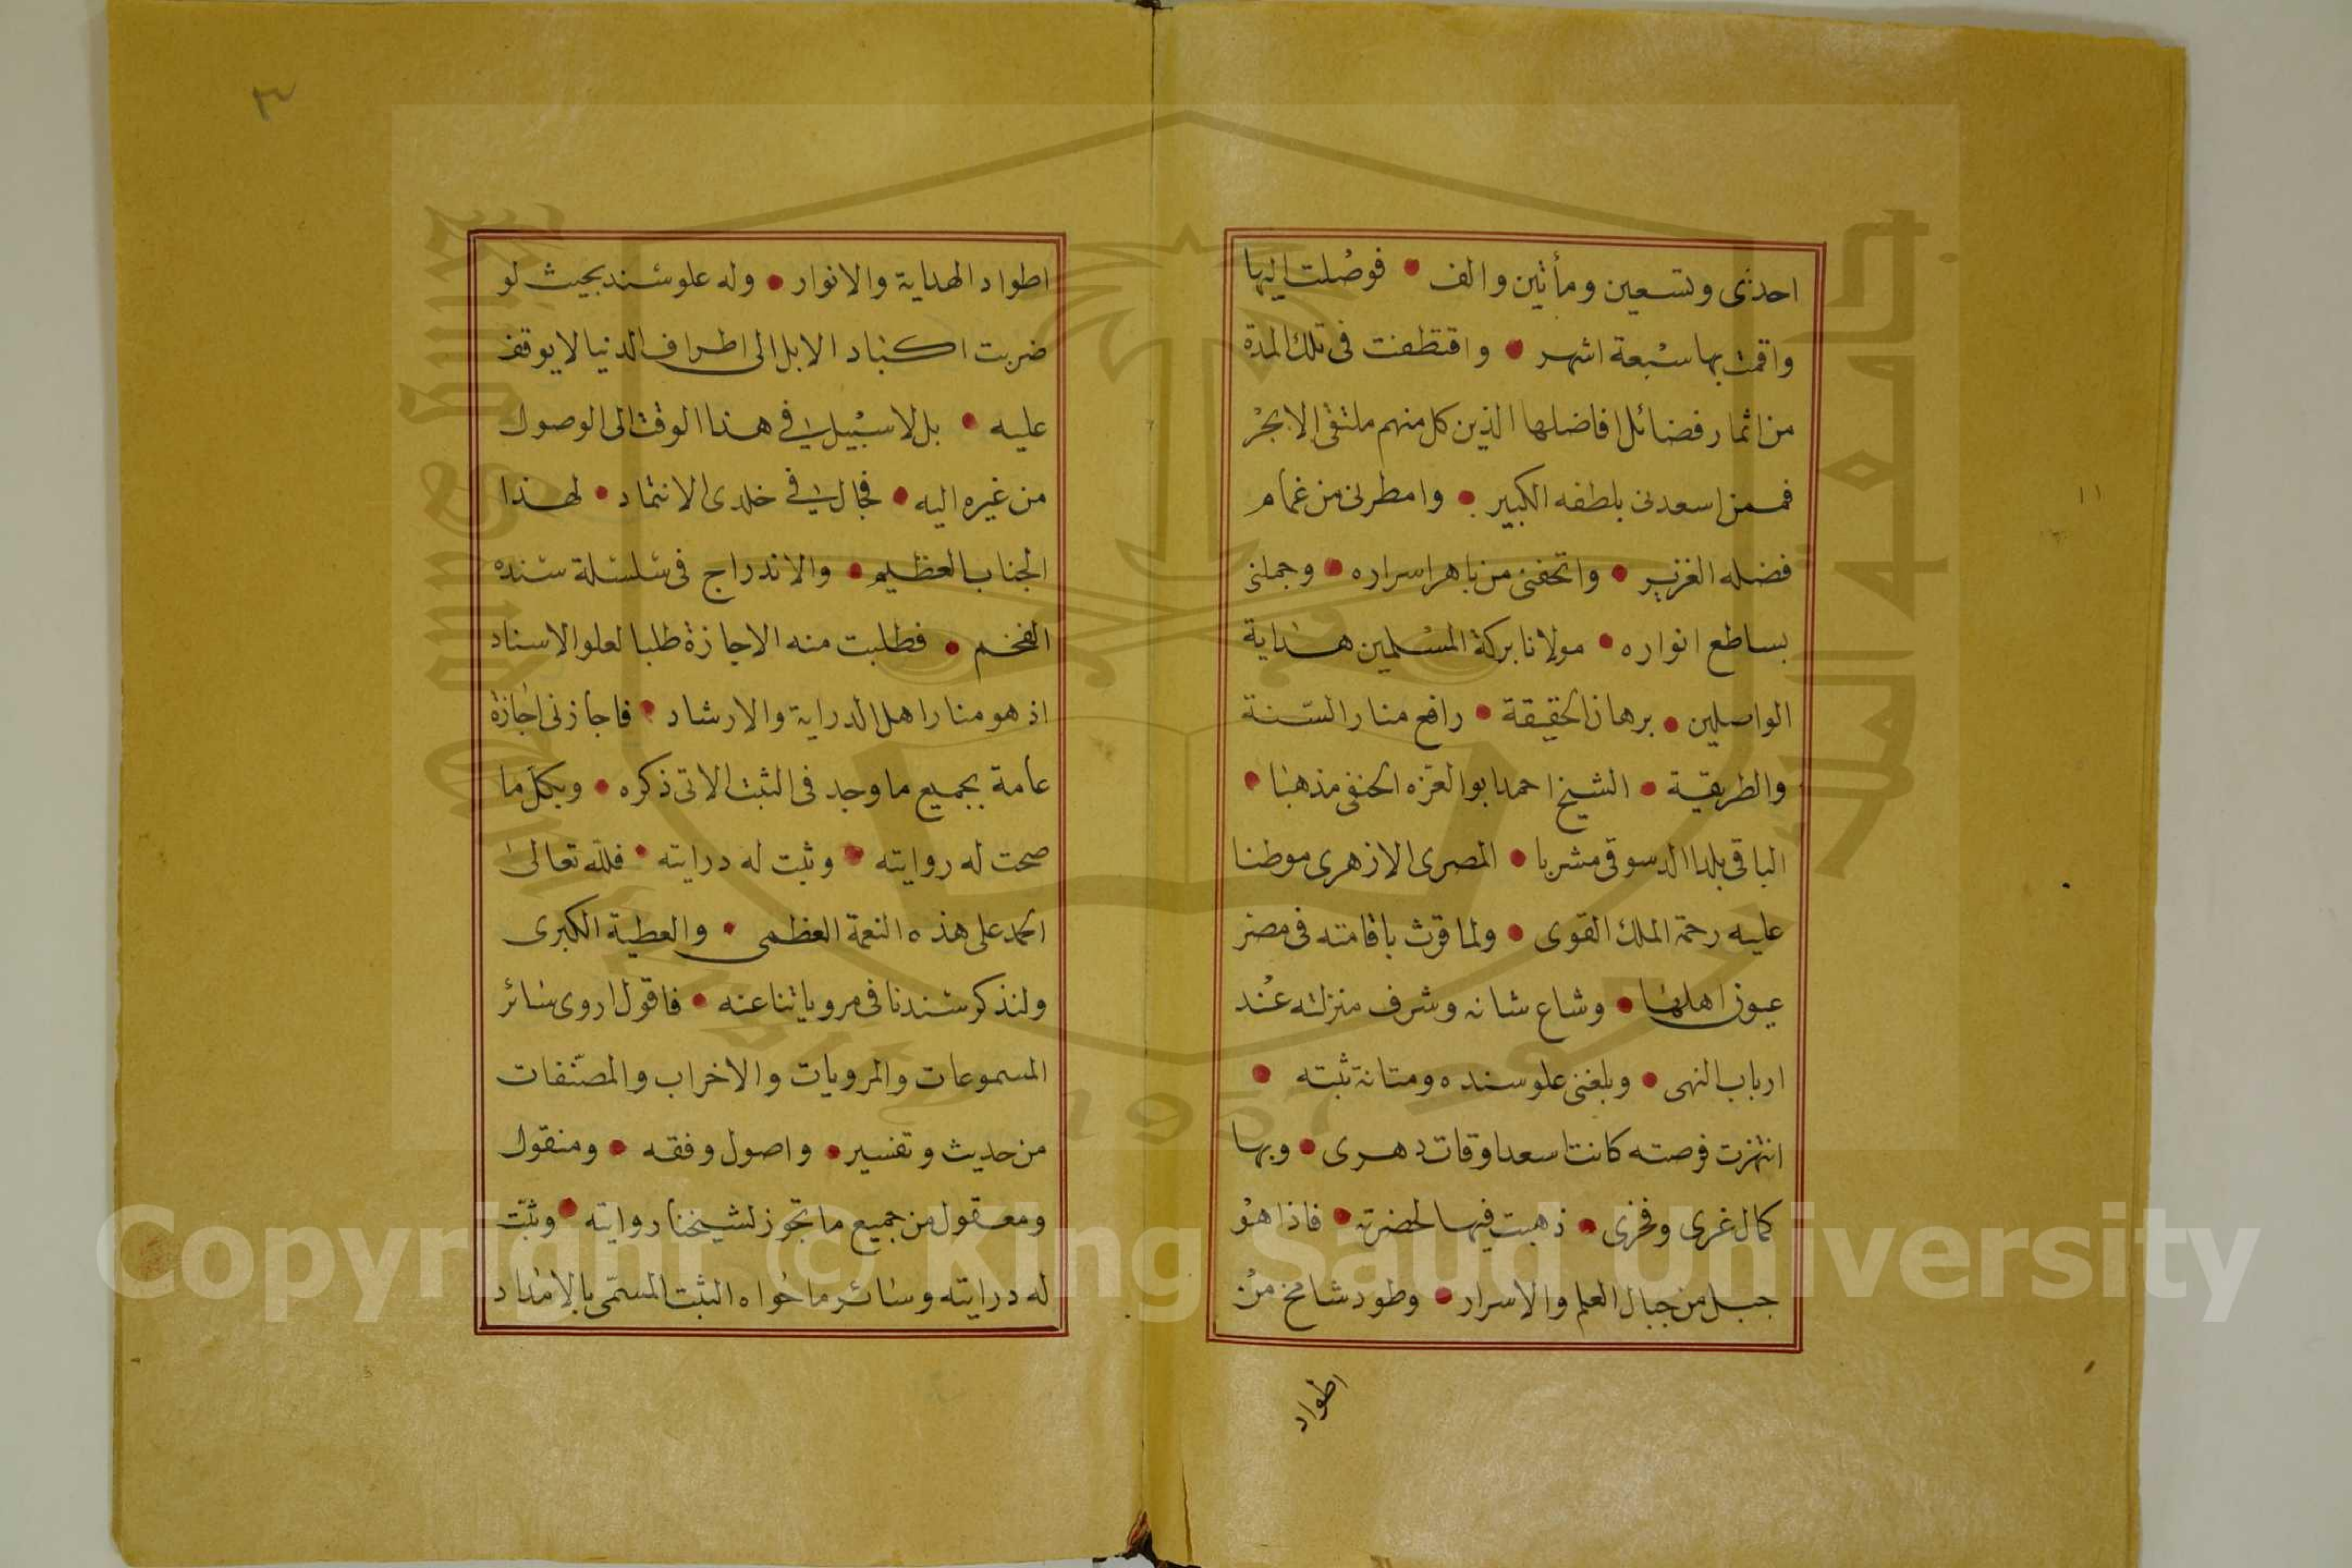 احدى وتسعين ومأتين والف • فوصلت اليها
واقمت بها سبعة اشهر • واقتطفت فى تلك المدة
من اثمار فضائل افاضلها الذين كل منهم ملتقى الابحر
فممن اسعدنى بلطفه الكبير • وامطرنى من غمام
فضله الغزير • واتحفنى من باهر اسراره • وجملنى
بساطع انواره • مولانا بركة المسلمين هداية
الواصلين • برهان الحقيقة • رافع منار السنة
والطريقية • الشيخ احمد ابو العزه الحنفى مذهبا •
الباقى بلدا الدسوقى مشربا • المصرى الازهرى موطنا
عليه رحمة الملك القوى • ولما قرت باقامته فى مصر
عيون اهلها • وشاع شانه وشرف منزلته عند
ارباب النهى • وبلغنى علو سنده ومتانة ثبته •
انتهزت فرصته كانت اسعد اوقات دهرى • وبها
كمال غرى وفخرى • ذهبت فيها لحضرته • فاذا هو
جبل من جبال العلم والاسرار • وطود شامخ من
اطواد
٣
اطواد الهداية والانوار • وله علو سند بحيث لو
ضربت اكباد الابل الى اطراف الدنيا لا يوقف
عليه • بل لا سبيل لى فى هذا الوقت الى الوصول
من غيره اليه • فجال لى فى خلدى الانتماد • لهذا
الجناب العظيم • والاندراج فى سلسلة سنده
الفخم • فطلبت منه الاجازة طلبا لعلو الاسناد
اذ هو منار اهل الدراية والارشاد • فاجازنى اجازة
عامة بجميع ما وجد فى الثبت الاتى ذكره • وبكل ما
صحت له روايته • وثبت له درايته • فلله تعالى
الحمد على هذه النعمة العظمى • والعطية الكبرى
ولنذكر سندنا فى مروياتنا عنه • فاقول اروى سائر
المسموعات والمرويات والاخراب والمصنفات
من حديث وتفسير • واصول وفقه • ومنقول
ومعقول من جميع ما تجوز لشيخنا روايته • وثبت
له درايته وسائر ما حواه الثبت المسمى بالامداد
Copyright © King Saud University
1957